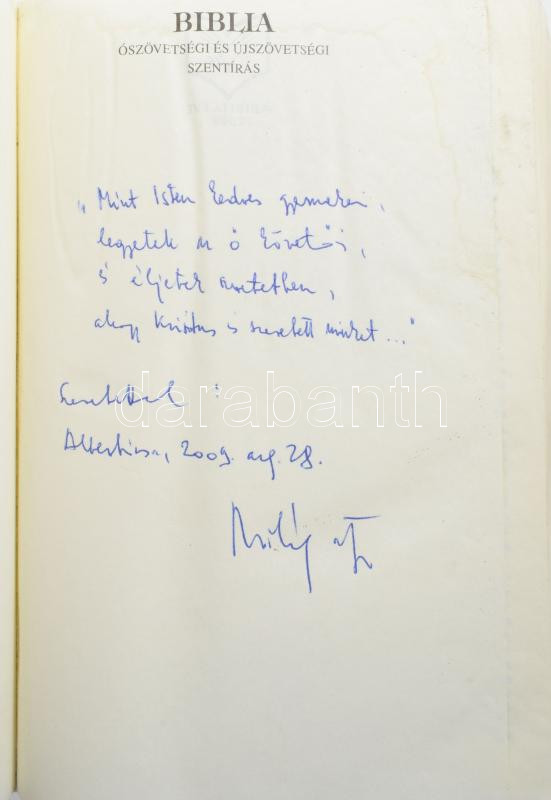 BIBLIA
ÓSZÖVETSÉGI ÉS ÚJSZÖVETSÉGI
SZENTÍRÁS
„Mint Isten kedves gyermekei,
legyetek az ő követői,
és éljetek szeretetben,
ahogy Krisztus is szeretett minket..."
Szeretettel:
darabanth
Albertirsa, 2009. aug. 28.